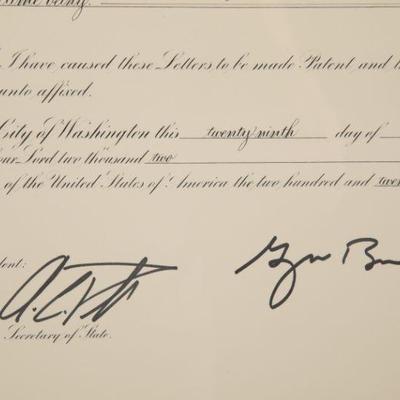 time being.
I have caused these Letters to be made Patent, and t
unto affixed.
City of Washington this twenty ninth day of
our Lord two thousand two
of the United States of America the two hundred and twen
dent:
Secretary of State.